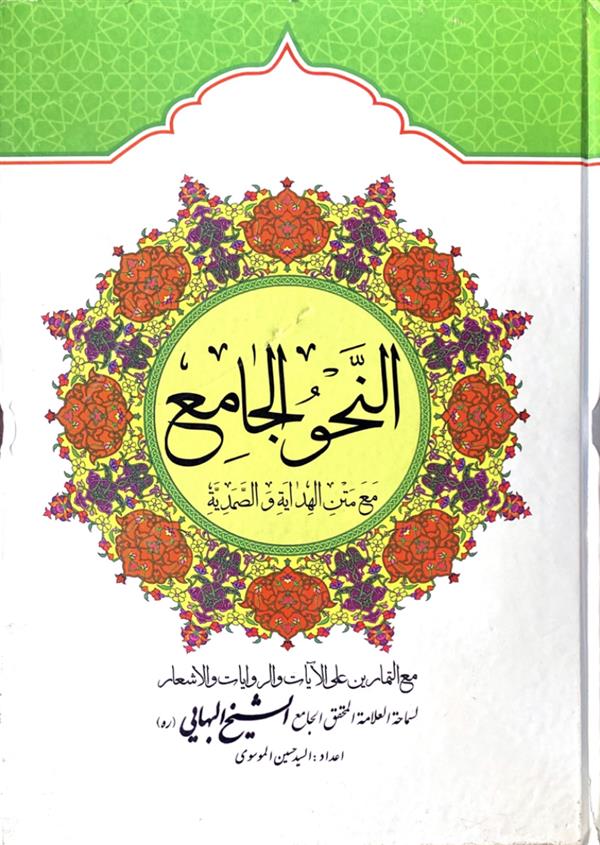 النَّحوُ الجامِع
مَعَ مَتنِ الهِدایَةِ وَ الصَّمَدِیَّةِ
مع التمارین علی الآیات والروایات والاشعار
لسماحة العلامة المحقق الجامع الشیخ البهایی (ره)
اعداد: السید حسین الموسوی